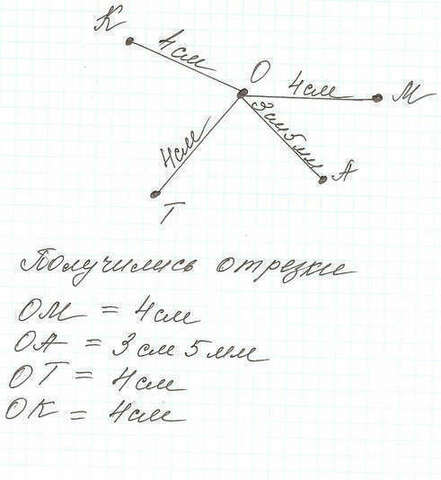 К
4см
О
4см
М
3см5мм
4см
А
Т
Получились отрезки
ОМ = 4см
ОА = 3см 5мм
ОТ = 4см
ОК = 4см